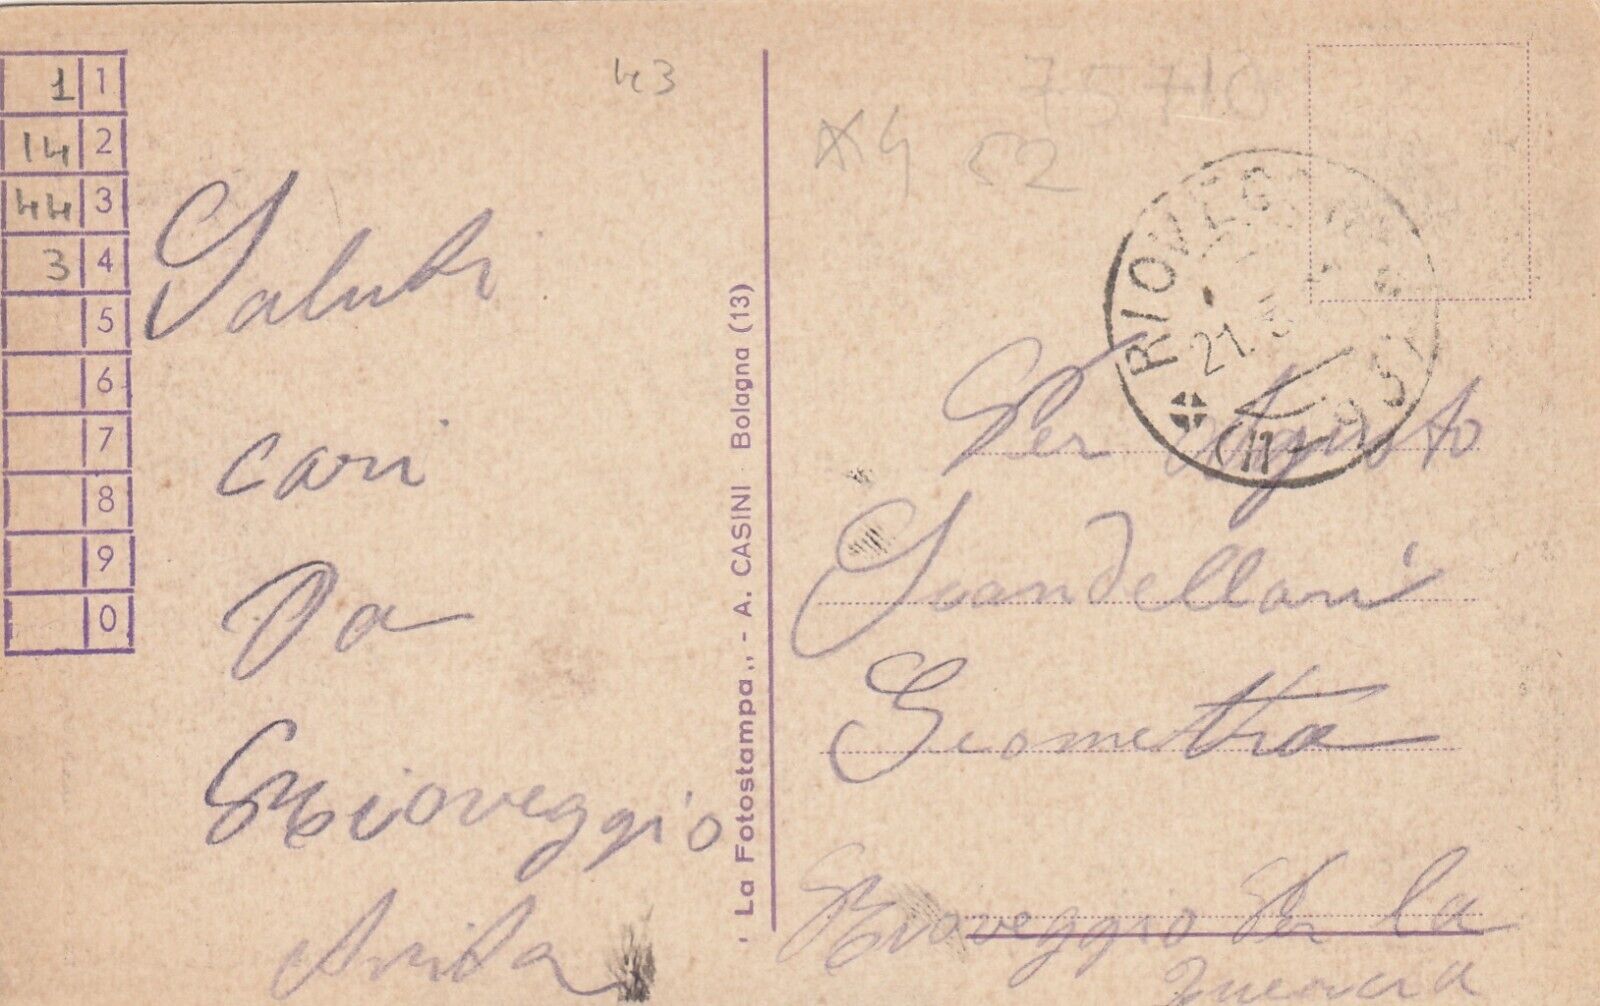 1 1
14 2
44 3
3 4
5
6
7
8
9
0
43
Saluti
cari
Da
Rioveggio
Anita
„La Fotostampa„ - A. CASINI Bolagna (13)
75710
X4 52
RIOVEGGIO
21.5
Per
Giandellari
Geometra
Rioveggio Per la
Quercia